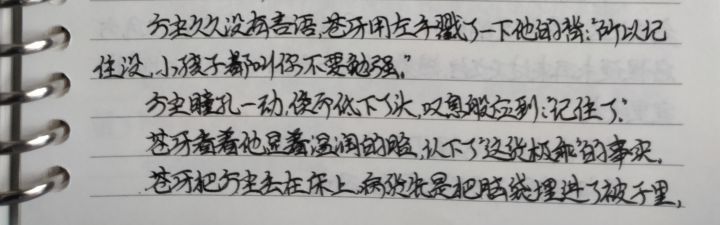 方尘久久没有言语,苍牙用左手戳了一下他的裆:"所以记
住没,小孩子都叫你不要勉强."
方尘瞳孔一动,倏而低下了头,叹息般应到:"记住了."
苍牙看着他显着湿润的脸,认下了这张极乖的事实.
苍牙把方尘丢在床上,病殃殃是把脑袋埋进了被子里,